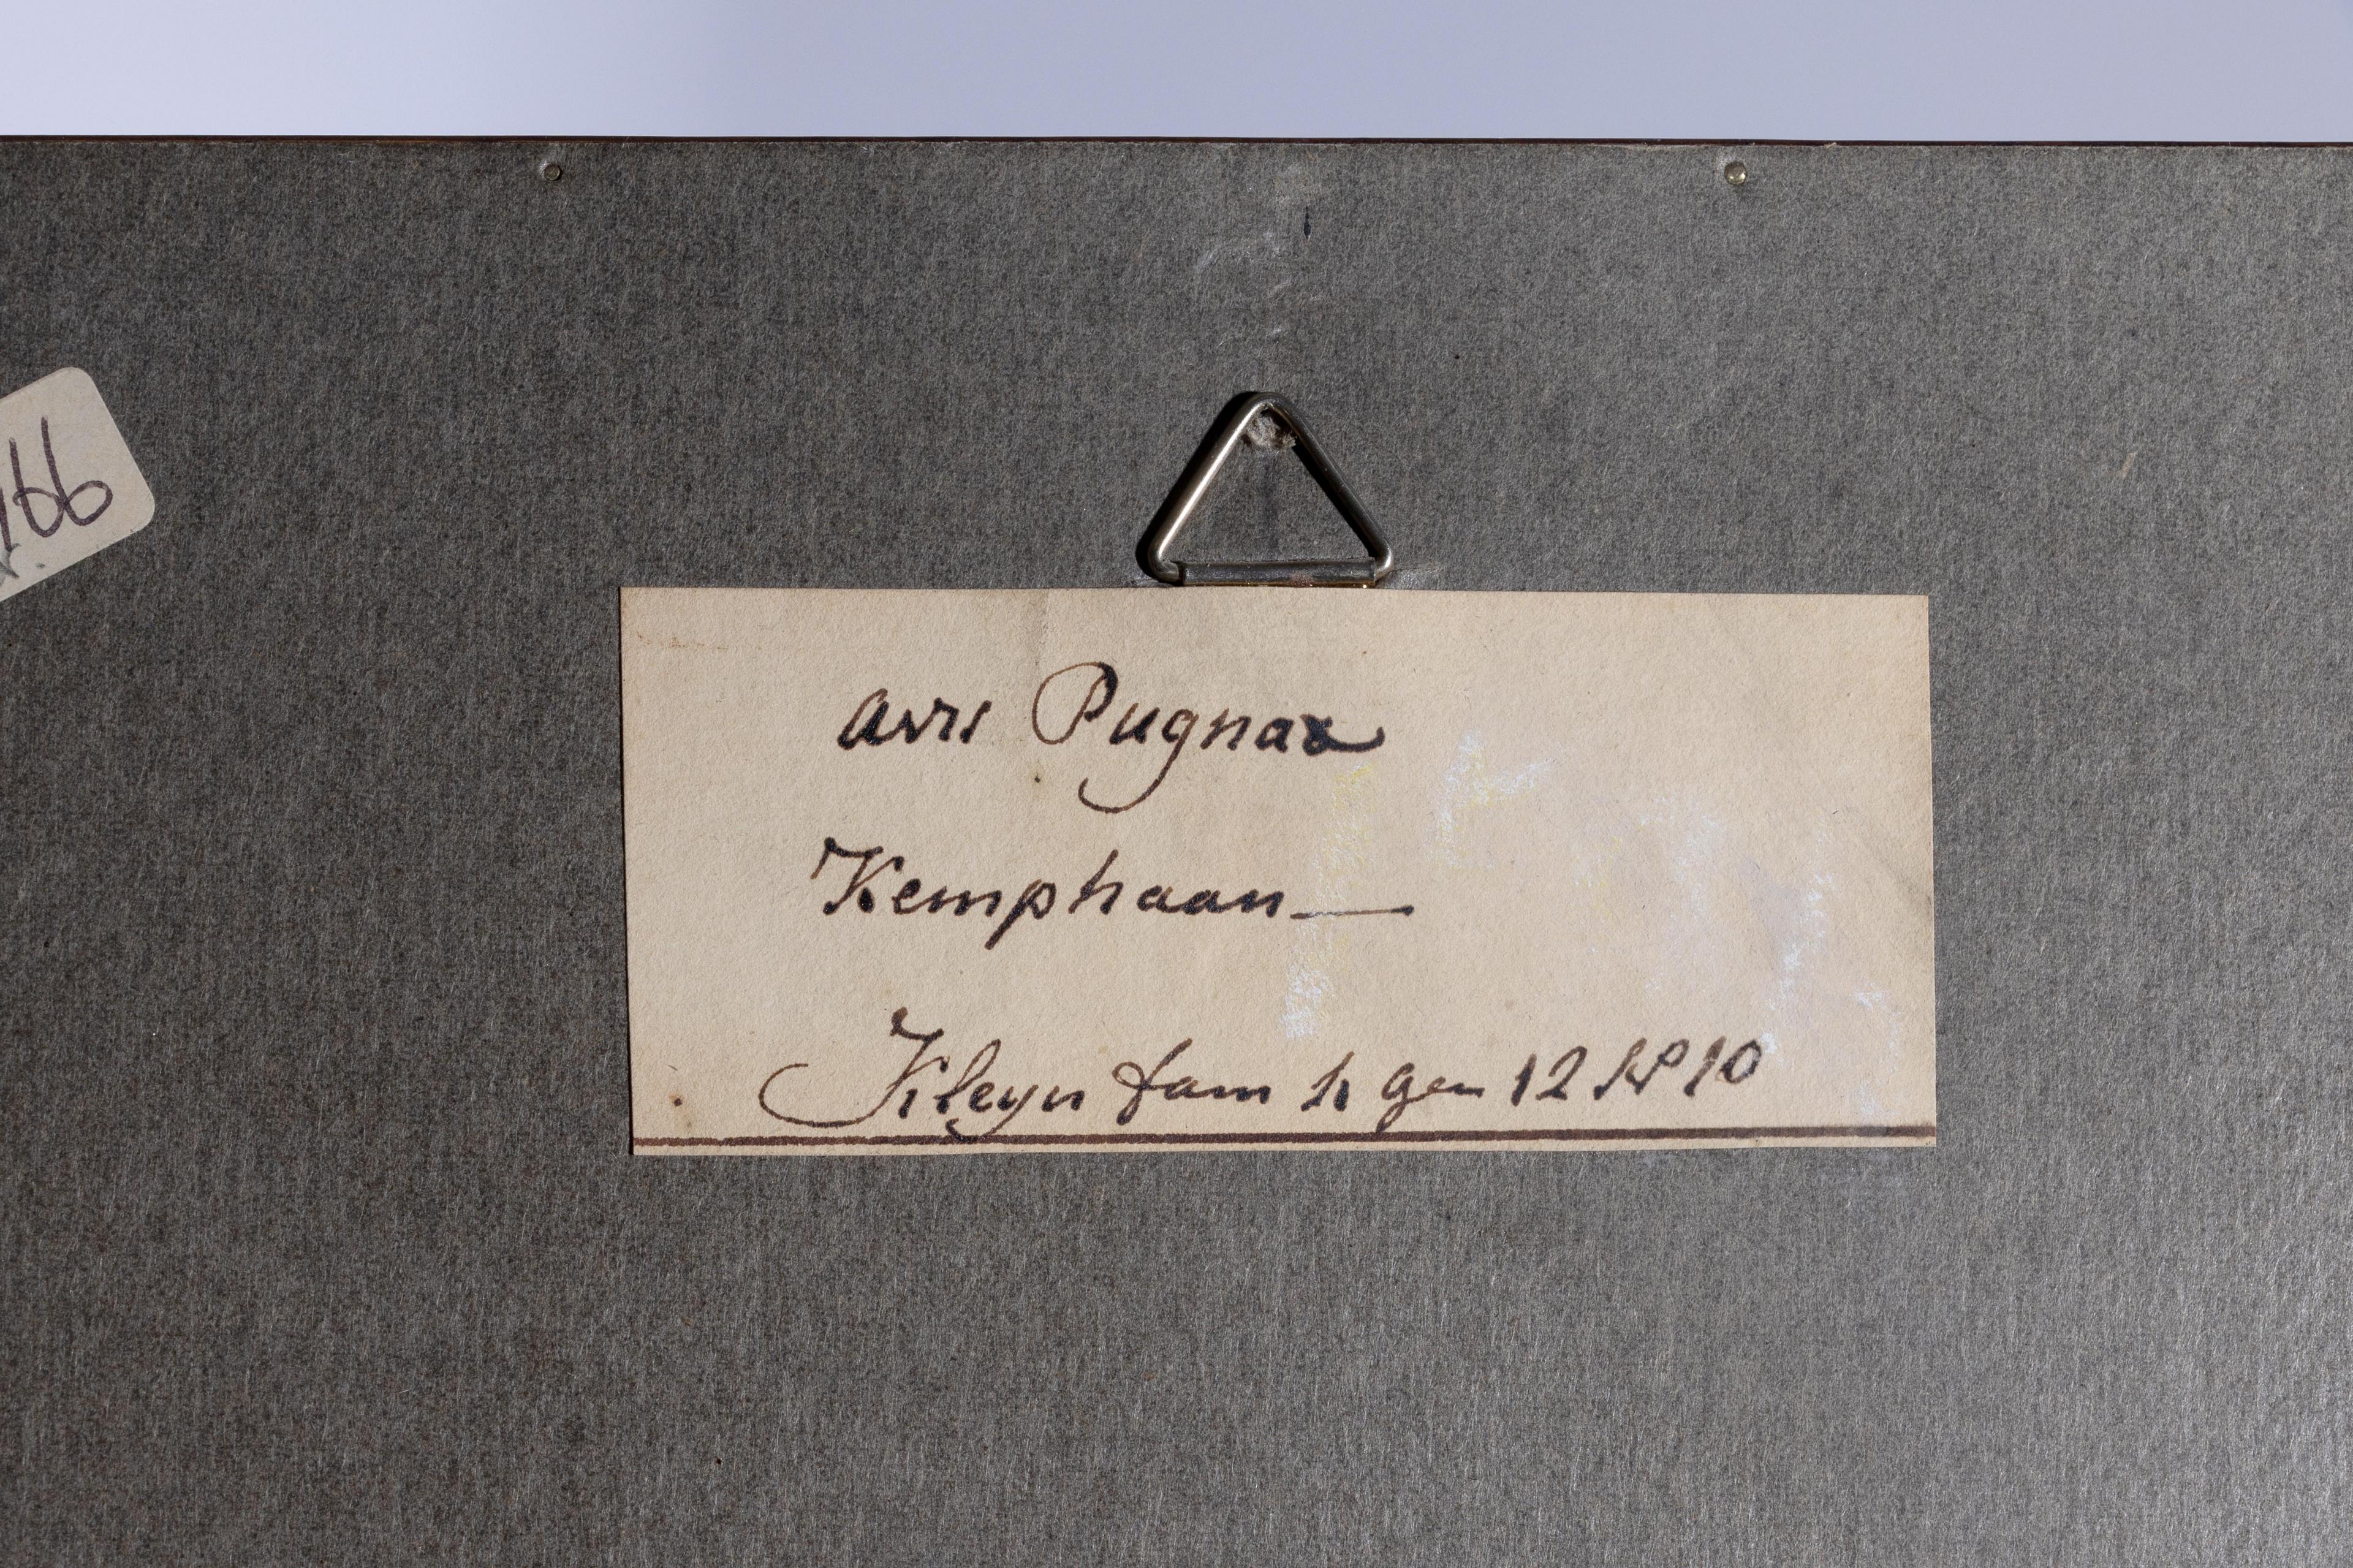 166
avis Pugnax
Kemphaan—
Kleyn fam h gen 12 No 10